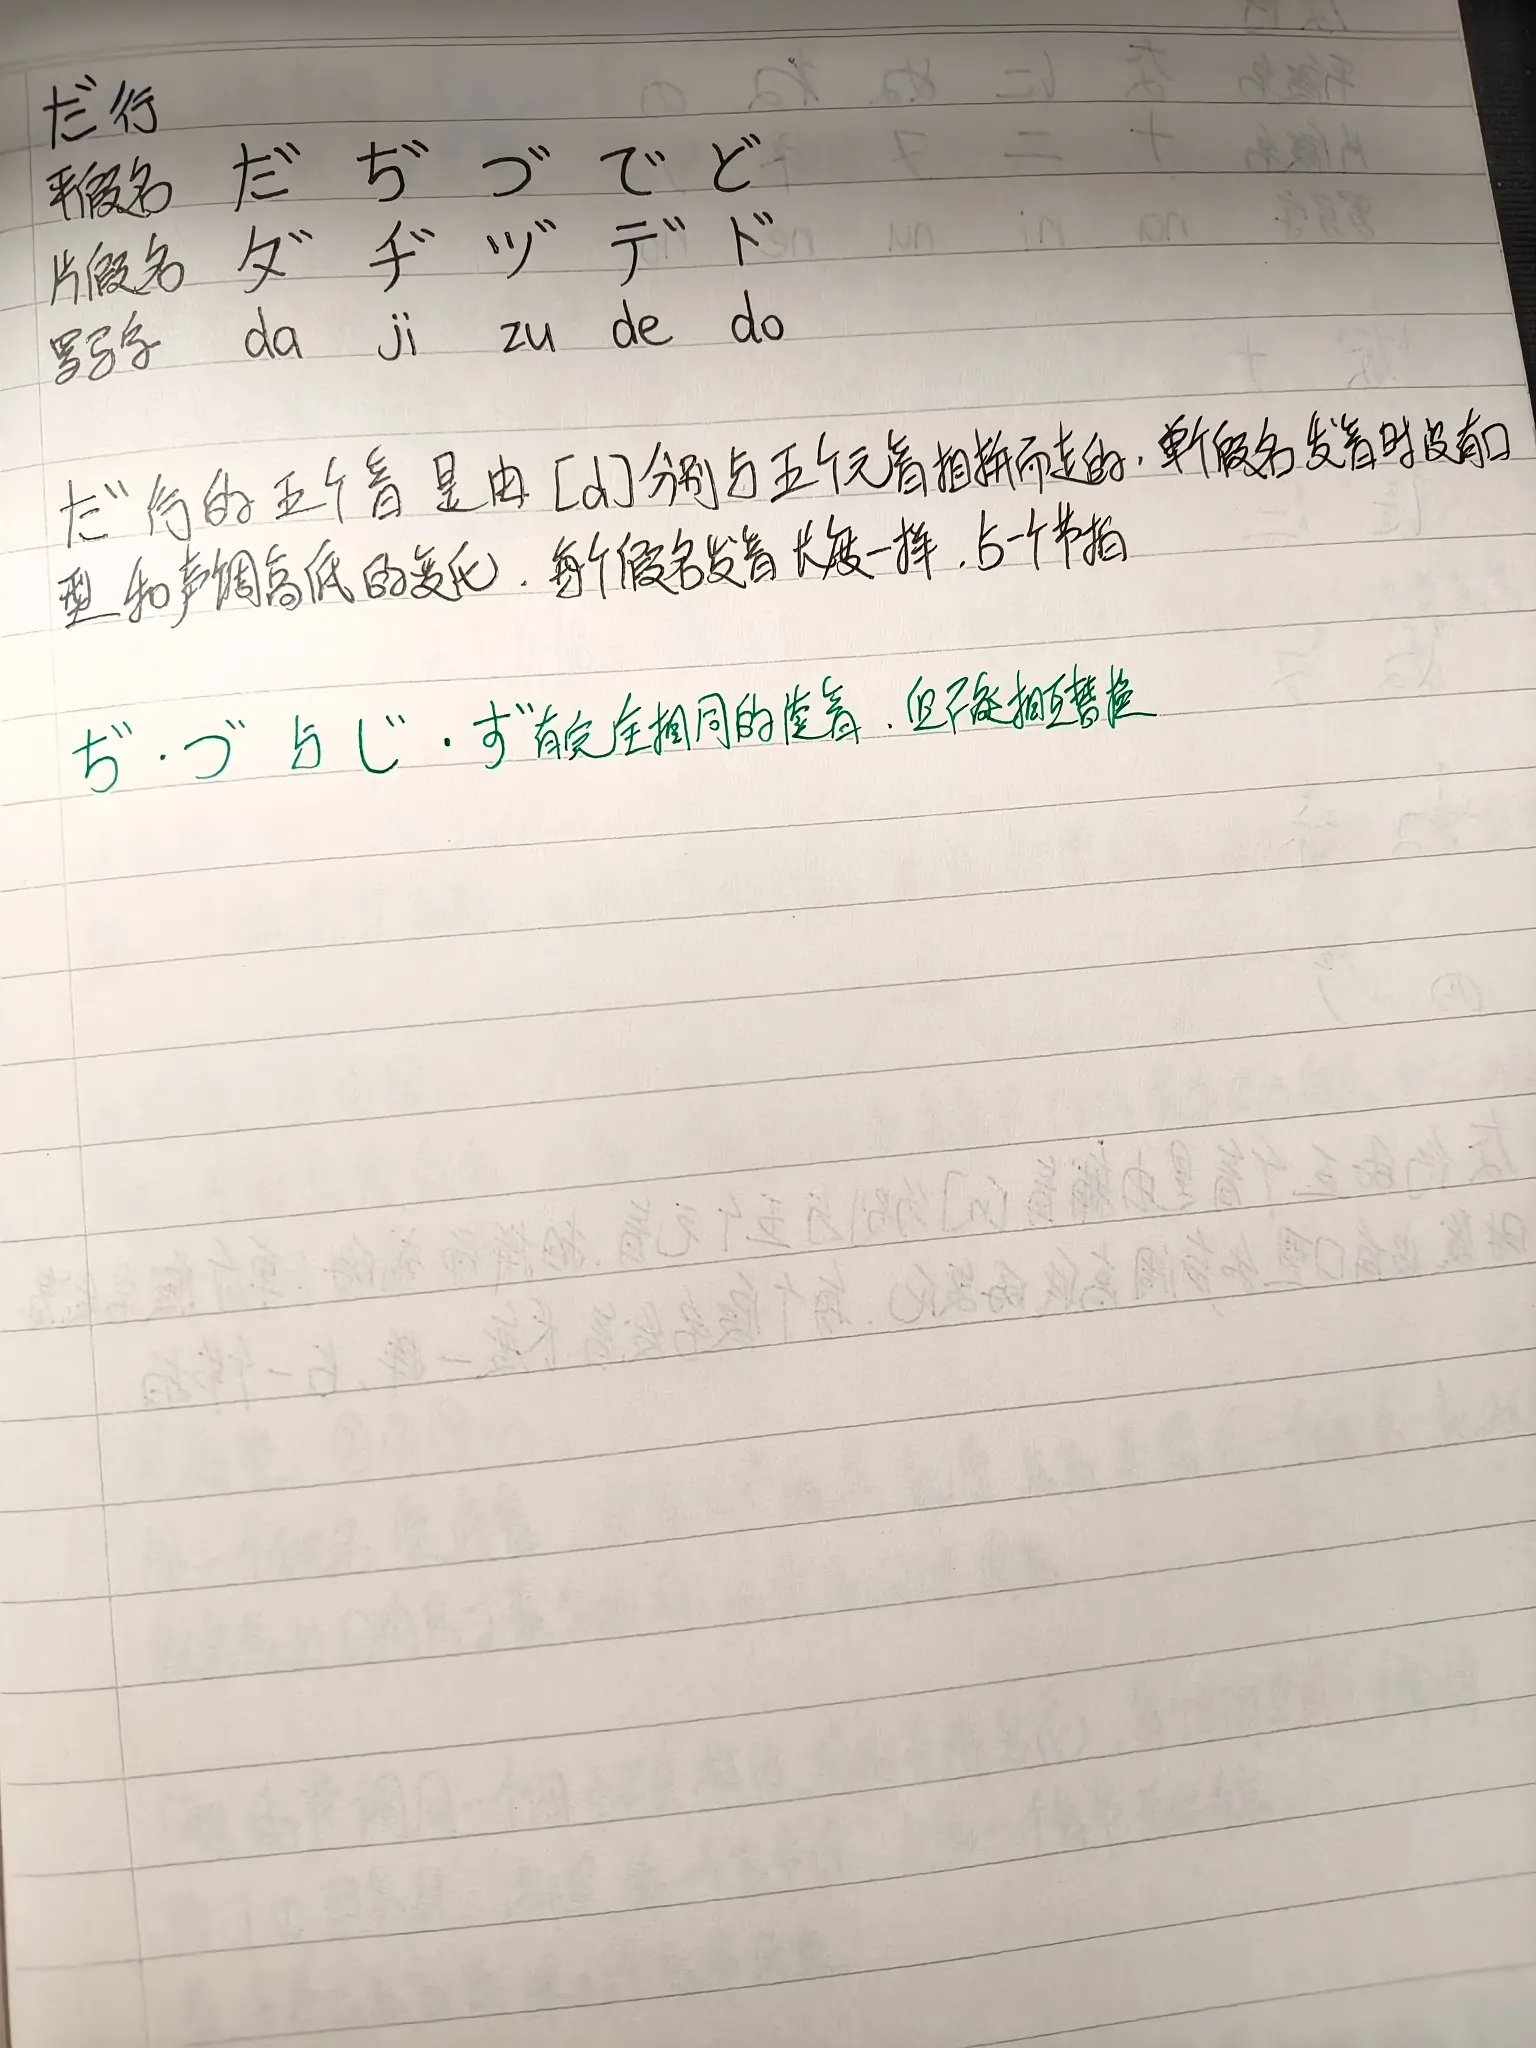 だ行
平假名 だ ぢ づ で ど
片假名 ダ ヂ ヅ デ ド
罗马字 da ji zu de do
だ行的五个音是由[d]分别与五个元音相拼而走的,单个假名发音时没有口
型和声调高低的变化.每个假名发音长度一样,占一个节拍
ぢ・づ与じ・ず有完全相同的读音.但不能相互替换